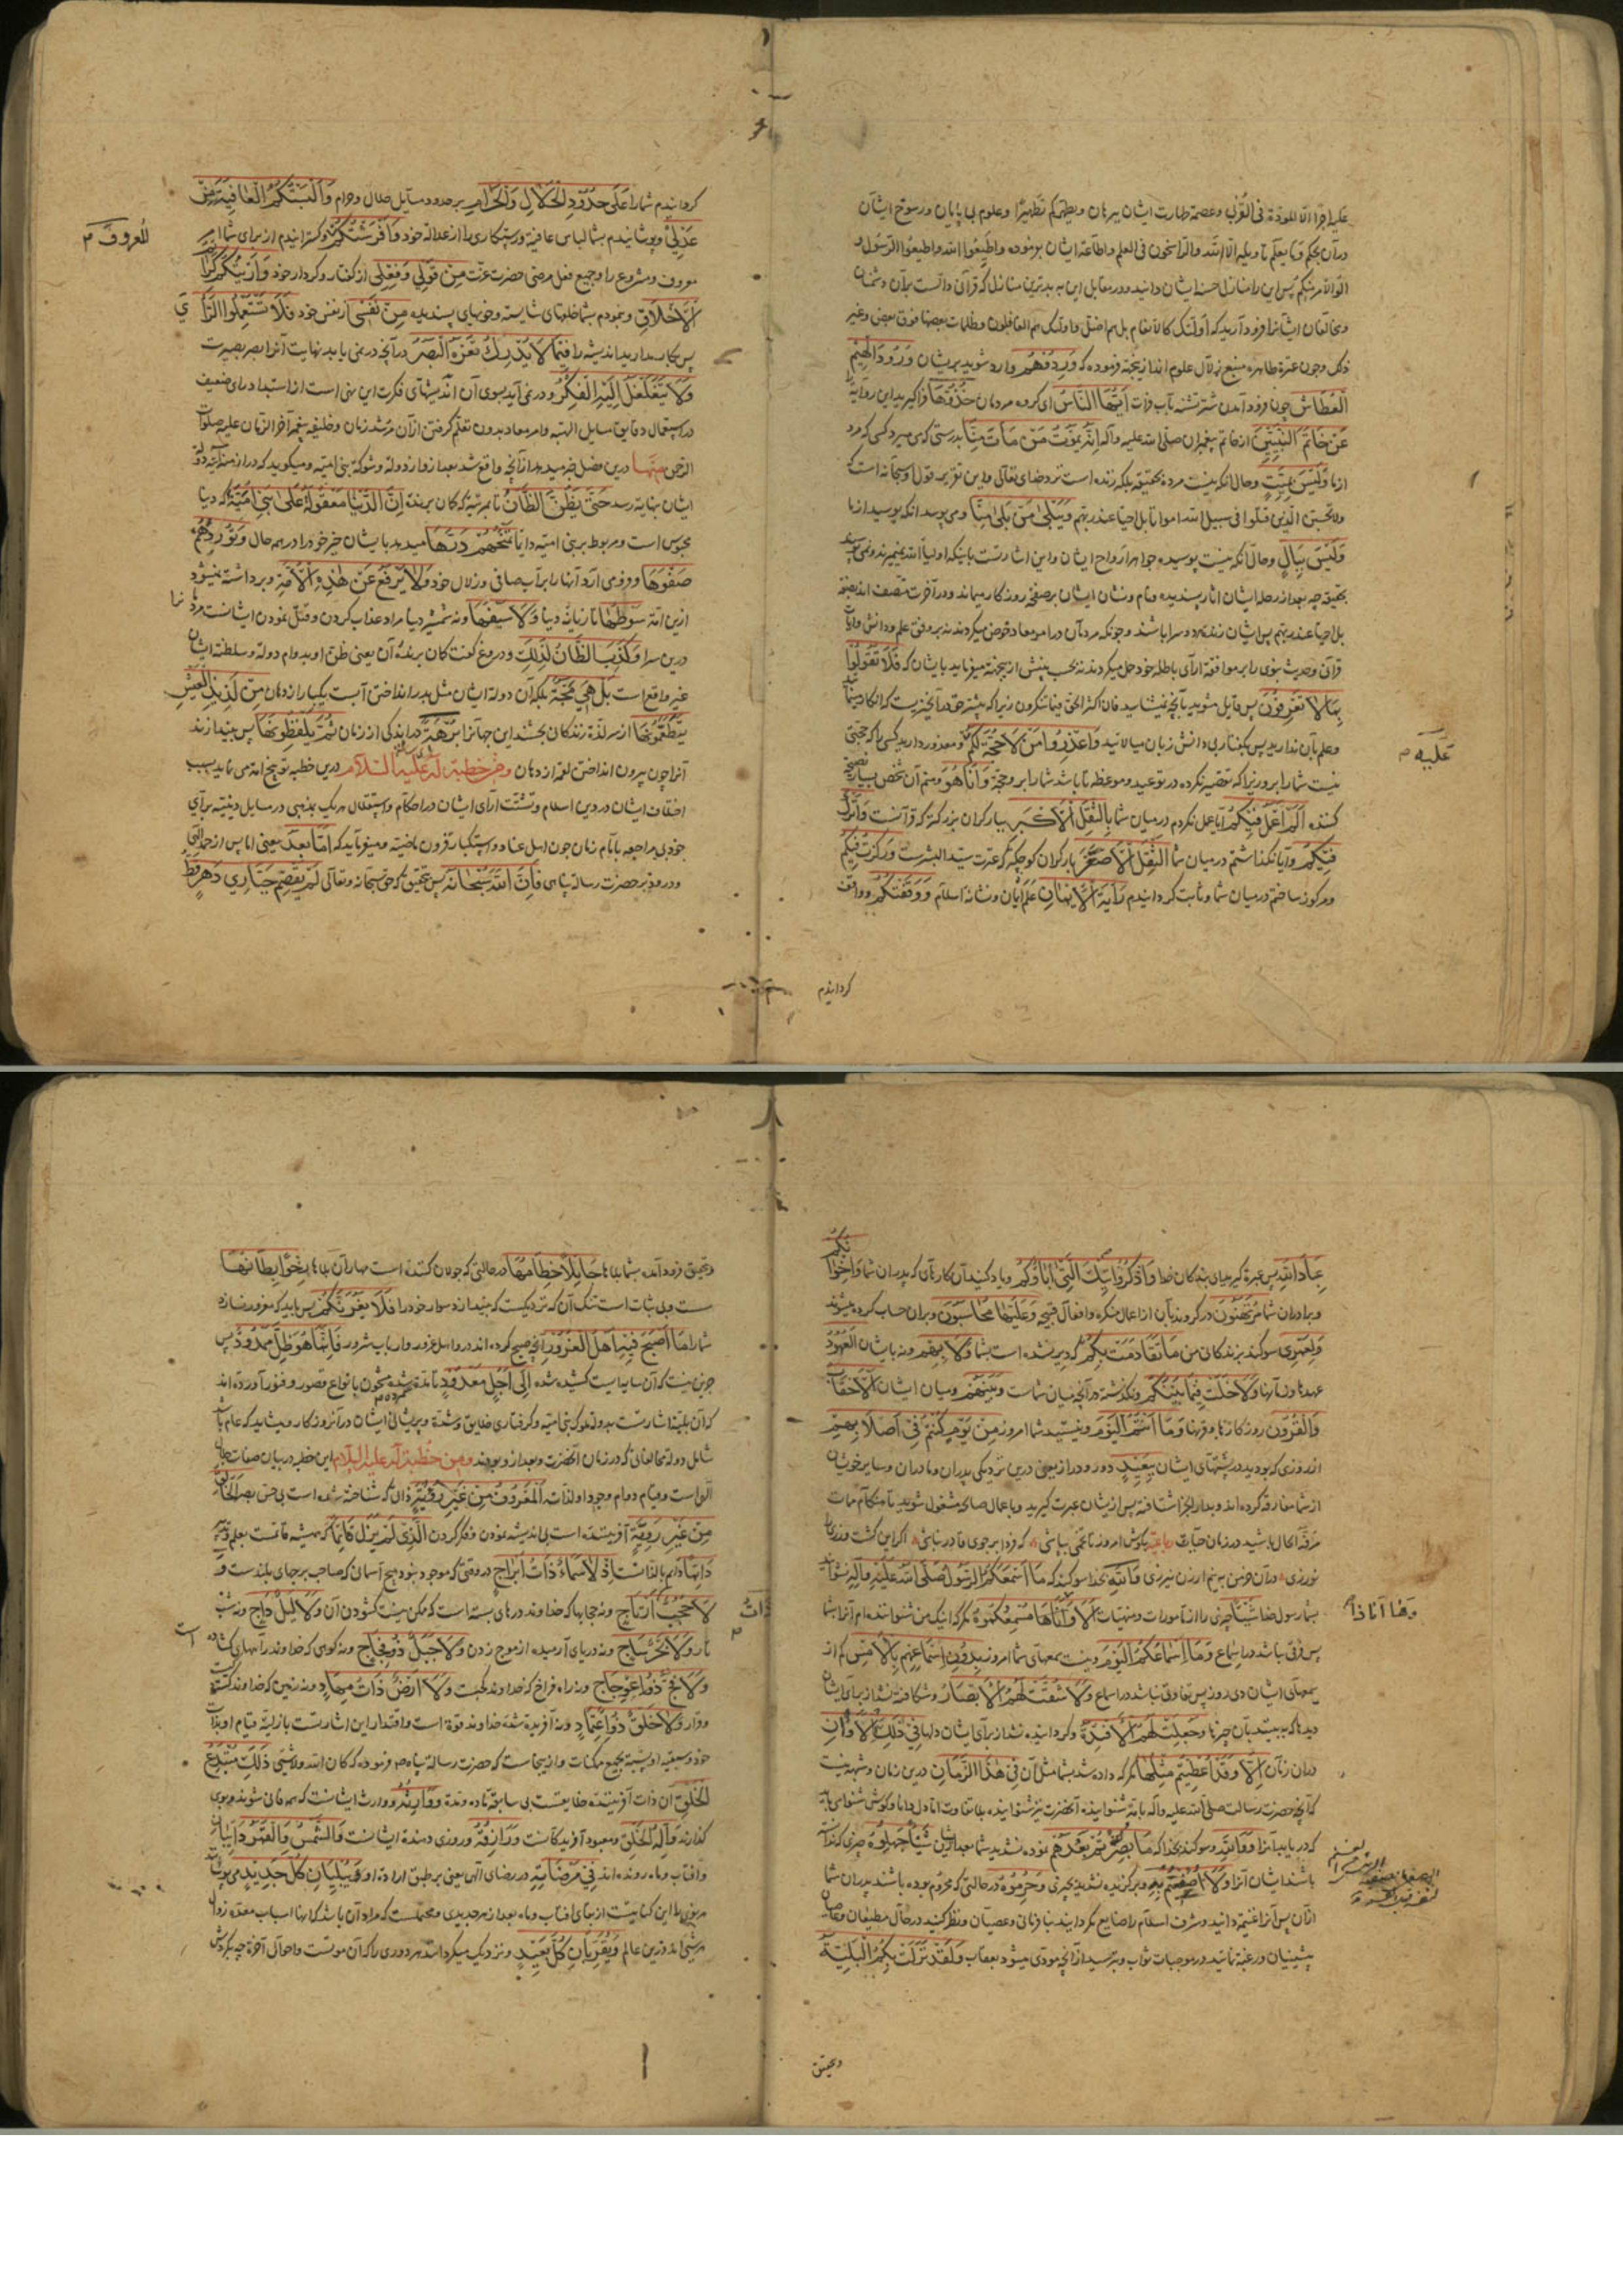 علیه اجرا الا المودة فی القربی وعصمة طهارت ایشان برهان ویطهرکم تطهیرا وعلوم بی پایان ورسوخ ایشان
در آن بحکم وما یعلم تاویله الا الله والراسخون فی العلم واطاعة ایشان بر نموده واطیعوا الله واطیعوا الرسول و
اولوالامر منکم پس این را منازل حسنه ایشان دانید ودر مقابل این به بدترین منازل که قرآن دالست بر آن دشمنان
ومخالفان ایشانرا فرود آرید که اولئک کالانعام بل هم اضل واولئک هم الغافلون وظلمات بعضها فوق بعض وغیر
ذلک وچون عترة طاهره منبع زلال علوم اند از یجهة فرموده که وَرِدُوهُمْ وارد شوید بر یشان وُرُودَ الْهِیمِ
الْعِطَاشِ چون فرود آمدن شتر تشنه بآب فرات اَیُّهَا النَّاسُ ای گروه مردمان خُذُوهَا فراگیرید این روایة
عَنْ خَاتَمِ النَّبِیِّینَ از خاتم پیغمبران صلی الله علیه وآله اِنَّهُ یَمُوتُ مَنْ مَاتَ مِنَّا بدرستی که می میرد کسی که مرد
از ما وَلَیْسَ بِمَیِّتٍ وحال آنکه نیست مرده بحقیقة بلکه زنده است نزد خدای تعالی واین تقریر قول او سبحانه است که
ولا تحسبن الذین قتلوا فی سبیل الله امواتا بل احیاء عند ربهم وَیَبْلَی مَنْ بَلِیَ مِنَّا ومی پوسد آنکه پوسید از ما
وَلَیْسَ بِبَالٍ وحال آنکه نیست پوسیده جواهر ارواح ایشان واین اشارتست باینکه اولیاء الله نمیرند ونمی پوسند
بحقیق چه بعد از رحلة ایشان آثار پسندیده ونام ونشان ایشان بر صفحه روزگار میماند ودر آخرت متصف اند بصفة
بل احیاء عند ربهم پس ایشان زنده هر دو سرا باشند وچونکه مردمان در امر معاد خوض میکردند نه بر وفق علم ودانش وآیات
قرآنی وحدیث نبوی را بر موافقة آرای باطله خود حمل میکردند نه بحسب بینش از یجهة میفرماید بایشان که فَلَا تَقُولُوا
بِمَا لَا تَعْرِفُونَ پس قایل مشوید بآنچه نمیشناسید فان اکثر الحق فیما تنکرون زیرا که بیشتر حق در آنچیزیست که انکار مینمایید
وعلم بآن ندارید پس بگفتار بی دانش زبان میالائید وَاعْذِرُوا مَنْ لَا حُجَّةَ لَکُمْ ومعذور دارید کسی را که حجتی
نیست شما را بر و زیرا که تقصیر نکرده در توعید وموعظه تا باشد شما را بر و حجة وَاَنَا هُوَ ومنم آن شخص بسیار نصیحة
کننده اَلَمْ اَعْمَلْ فِیکُمْ آیا عمل نکردم در میان شما بِالثِّقْلِ الْاَکْبَرِ ببار گران بزرگتر که قرآنست وَاَتْرُکْ
فِیکُمْ وآیا نگذاشتم در میان شما الثِّقْلَ الْاَصْغَرَ بار گران کوچکتر که عترت سید البشرست وَرَکَزْتُ فِیکُمْ
ومرکوز ساختم در میان شما وثابت گردانیدم رَایَةَ الْاِیمَانِ علم ایمان ونشانه اسلام وَوَقَفْتُکُمْ وواقف
علیه م
گردانیدم
گردانیدم شما را عَلَی حُدُودِ الْحَلَالِ وَالْحَرَامِ بر حدود مسایل حلال وحرام وَاَلْبَسْتُکُمُ الْعَافِیَةَ مِنْ
عَدْلِی وپوشانیدم بشما لباس عافیة ورستگاری را از عدالة خود وَاَفْرَشْتُکُمُ وگسترانیدم از برای شما امر
المعروف م
معروف ومشروع را وجمیع فعل مرضی حضرت عزت مِنْ قَوْلِی وَفِعْلِی از گفتار وکردار خود وَاَرَیْتُکُمْ کَرَایِمَ
الْاَخْلَاقِ ونمودم بشما خلقهای شایسته وخویهای پسندیده مِنْ نَفْسِی از نفس خود فَلَا تَسْتَعْمِلُوا الرَّاْیَ
پس بکار مدارید اندیشه را فِیمَا لَا یُدْرِکُ قَعْرَهُ الْبَصَرُ در آنچه در نمی یابد نهایت آنرا بصر بصیرت
وَلَا یَتَغَلْغَلُ اِلَیْهِ الْفِکَرُ ودر نمی آید بسوی آن اندیشهای فکرت این نهی است از استبداد رای ضعیف
در استعمال دقایق مسایل الهیه وامر معاد بدون تعلم گرفتن از آن مرشد زمان وخلیفه پیغمبر آخر الزمان علیه صلوات
الرحمن منها درین فصل خبر میدهد از آنچه واقع شد بعد از و از دولة وشوکة بنی امیه ومیگوید که در ازمنه آتیه دولة
ایشان بنهایة رسد حَتَّی یَظُنَّ الظَّانُّ تا بمرتبة که گمان برنده اِنَّ الدُّنْیَا مَعْقُولَةٌ عَلَی بَنِی اُمَیَّةَ که دنیا
محبوس است ومربوط بر بنی امیه دایما تَمْنَحُهُمْ دَرَّهَا میدهد بایشان خیر خود را در همه حال وَتُورِدُهُمْ
صَفْوَهَا وورزی آرد آنها را بر آب صافی وزلال خود وَلَا یُرْفَعُ عَنْ هٰذِهِ الْاُمَّةِ وبرداشته نمیشود
ازین امة سَوْطُهَا تازیانه دنیا وَلَا سَیْفُهَا ونه شمشیر دنیا مراد عذاب کردن وقتل نمودن ایشانست مردمانرا
درین سرا وَکَذَبَ الظَّانُّ لِذٰلِکَ ودروغ گفت گمان برنده آن یعنی ظن او بدوام دولة وسلطنة ایشان
غیر واقع است بَلْ هِیَ مَجَّةٌ بلکه آن دولة ایشان مثل بدر انداختن آبست یکبار از دهان مِنْ لَذِیذِ الْعَیْشِ
یَتَطَعَّمُونَهَا از سر لذة زندگانی بچشند این جهانرا بُرْهَةً در اندکی از زمان ثُمَّ یَلْفِظُونَهَا پس بیندازند
آنرا چون بیرون انداختن لقمه از دهان ومن خطبة له علیه السلام درین خطبه توبیخ امة می نماید بسبب
اختلاف ایشان در دین اسلام وتشتت آرای ایشان در احکام واستقلال هر یک بمذهبی در مسایل دینیه برای
خود بی مراجعه بامام زمان چون اهل عناد واستکبار قرون ماضیه ومیفرماید که اَمَّا بَعْدُ یعنی اما پس از حمد الهی
ودرود بر حضرت رسالة پناهی فَاِنَّ اللهَ سُبْحَانَهُ پس بتحقیق که حق سبحانه وتعالی لَمْ یَقْصِمْ جَبَّارِی دَهْرٍ قَطُّ
عِبَادَ اللهِ پس عبرة گیرید ای بندگان خدا وَاذْکُرُوا تِیکَ الَّتِی اٰبَاؤُکُمْ ویاد کنید آن کارهای که پدران شما وَاِخْوَانُکُمْ
وبرادران شما بِهَا مُرْتَهَنُونَ در گروند بآن از اعمال منکره وافعال قبیح وَعَلَیْهَا مُحَاسَبُونَ وبر آن حساب کرده میشوند
وَلَعَمْرِی سوگند بزندگانی من مَا تَقَادَمَتْ بِکُمْ که دیر نشده است بشما وَلَا بِهِمْ ونه بایشان الْعُهُودُ
عهدها وزمانها وَلَا خَلَتْ فِیمَا بَیْنَکُمْ ونگذشته در آنچه میان شماست وَبَیْنَهُمْ ومیان ایشان الْاَحْقَابُ
وَالْقُرُونُ روزگارها وقرنها وَمَا اَنْتُمُ الْیَوْمَ ونیستید شما امروز مِنْ یَوْمَ کُنْتُمْ فِی اَصْلَابِهِمْ
از روزی که بودید در پشتهای ایشان بِبَعِیدٍ دور ودراز یعنی درین نزدیکی پدران ومادران وسایر خویشان
از شما مفارقة کرده اند وبدار الجزا شتافته پس ازیشان عبرت گیرید وباعمال صالحه مشغول شوید تا هنگام ممات
مرفه الحال باشید در زمان حیات رباعیه بکوش امروز تا تخمی بپاشی که فردا بر جوی قادر نباشی اگر این کشت ورزی را
نورزی در آن خرمن به نیم ارزن نیرزی وَاللهِ بخدا سوگند که مَا اَسْمَعَکُمُ الرَّسُولُ صَلَّی اللهُ عَلَیْهِ وَاٰلِهِ نشوانید
بشما رسول خدا شَیْئًا چیزی را از مامورات ومنهیات اِلَّا وَهَا اَنَا ذَا مُسْمِعُکُمُوهُ مگر که اینک من شنواننده ام آنرا بشما
وها انا ذا
پس فرقی نباشد در اسماع وَمَا اَسْمَاعُکُمُ الْیَوْمَ ونیست سمعهای شما امروز بِدُونِ اَسْمَاعِهِمْ بِالْاَمْسِ کم از
سمعهای ایشان دی روز پس تفاوتی نباشد در اسماع وَلَا شُقَّتْ لَهُمُ الْاَبْصَارُ وشکافته نشد از برای ایشان
دیدها که به بینند بآن چیزها وَجُعِلَتْ لَهُمُ الْاَفْئِدَةُ وگردانیده نشد از برای ایشان دلها فِی ذٰلِکَ الْاَوَانِ
در آن زمان اِلَّا وَقَدْ اُعْطِیتُمْ مِثْلَهَا مگر که داده شد بشما مثل آن فِی هٰذَا الزَّمَانِ درین زمان وشبهه نیست
که آنچه حضرت رسالت صلی الله علیه وآله بامة شنوانیده آنحضرت نیز شنوانیده
که دریابید آنرا وَوَاللهِ وسوگند بخدا که مَا بُصِّرْتُمْ بَعْدَهُمْ نموده نشدید شما بعد از ایشان شَیْئًا جَهِلُوهُ چیزی که ندانسته
باشند ایشان آنرا وَلَا اُصْفِیتُمْ بِهِ وبرگزیده نشدید بچیزی وَحُرِمُوهُ در حالتی که محروم بوده باشند پدران شما
از آن پس آنرا غنیمة دانید وشرف اسلام را ضایع مگردانید بنافرمانی وعصیان ونظر کنید در حال مطیعان وعاصیان
پیشینیان ورغبة نمائید در موجبات ثواب وبترسید از آنچه مودی میشود بعقاب وَلَقَدْ نَزَلَتْ بِکُمُ الْبَلِیَّةُ
وتحقیق
وتحقیق فرود آمده بشما بلاها جَایِلًا خِطَامُهَا در حالتی که جولان کننده است مهار آن بلاها رِخْوًا بِطَانُهَا
سست وبی ثبات است تنگ آن که نزدیکست که بیندازد سوار خود را فَلَا یَغُرَّنَّکُمْ پس باید که مغرور نسازد
شما را مَا اَصْبَحَ فِیهِ اَهْلُ الْغُرُورِ آنچه صبح کرده اند در و اهل غرور وارباب شرور فَاِنَّمَا هُوَ ظِلٌّ مَمْدُودٌ پس
جزین نیست که آن سایه ایست کشیده شده اِلَی اَجَلٍ مَعْدُودٍ تا مدة شمرده شده مشحون بانواع قصور وفتور آورده اند
که آن بلیه اشارتست بدولة ملوک بنی امیه وگرفتاری خلایق وشدة وپریشانی ایشان در آن روزگار ومیشاید که عام باشد
شامل دولة مخالفانی که در زمان آنحضرت وبعد از و بودند ومن خطبة له علیه السلام این خطبه در بیان صفات جلال
الهی است وقیام ودوام وجود او لذاته الْمَعْرُوفُ مِنْ غَیْرِ رُؤْیَةٍ ذاتی که شناخته شده است بی حس بصر الْخَالِقُ
مِنْ غَیْرِ رَوِیَّةٍ آفریننده است بی اندیشه نمودن وفکر کردن الَّذِی لَمْ یَزَلْ قَایِمًا که همیشه قایمست بعلم قدیم
دَایِمًا دایم بالذاتست اِذْ لَا سَمَاءٌ ذَاتُ اَبْرَاجٍ در وقتی که موجود نبود هیچ آسمانی که صاحب برجهای بلندست وَ
لَا حُجُبٌ ذَاتُ اَرْتَاجٍ ونه حجابها که خداوند درهای بسته است که ممکن نیست گشودن آن وَلَا لَیْلٌ دَاجٍ ونه شب
ذات
تار وَلَا بَحْرٌ سَاجٍ ونه دریای آرمیده از موج زدن وَلَا جَبَلٌ ذُو فِجَاجٍ ونه کوهی که خداوند راههای گشاده است
وَلَا فَجٌّ ذُو اعْوِجَاجٍ ونه راه فراخ که خداوند کجیست وَلَا اَرْضٌ ذَاتُ مِهَادٍ ونه زمین که خداوند گسترده
وَلَا خَلْقٌ ذُو اعْتِمَادٍ ونه آفریده شده خداوند قوة است واقتدار این اشارتست بازلیة وقیام او بذات
خود وسبقت او نسبة بجمیع ممکنات وازینجاست که حضرت رسالة پناه ص فرموده که کان الله ولا شیء ذٰلِکَ مُبْتَدِعُ
الْخَلْقِ آن ذات آفریننده خلایقست بی سابقه ماده ومدة وَوَارِثُهُ ووارث ایشانست که همه فانی شوند و
گذارند وَاِلٰهُ الْخَلْقِ ومعبود آفریدگانست وَرَازِقُهُ وروزی دهنده ایشانست وَالشَّمْسُ وَالْقَمَرُ دَایِبَانِ
وآفتاب وماه رونده اند فِی مَرْضَاتِهِ در رضای الهی یعنی بر طبق اراده او یُبْلِیَانِ کُلَّ جَدِیدٍ می پوسانند
هر نوی را این کنایتست از بقای آفتاب وماه بعد از هر جدیدی ومحتملست که مراد آن باشد که آنها اسباب معده زوال
هر شیء اند درین عالم وَیُقَرِّبَانِ کُلَّ بَعِیدٍ ونزدیک میگردانند هر دوری را که آن موتست واحوال آخرة چه بگردش